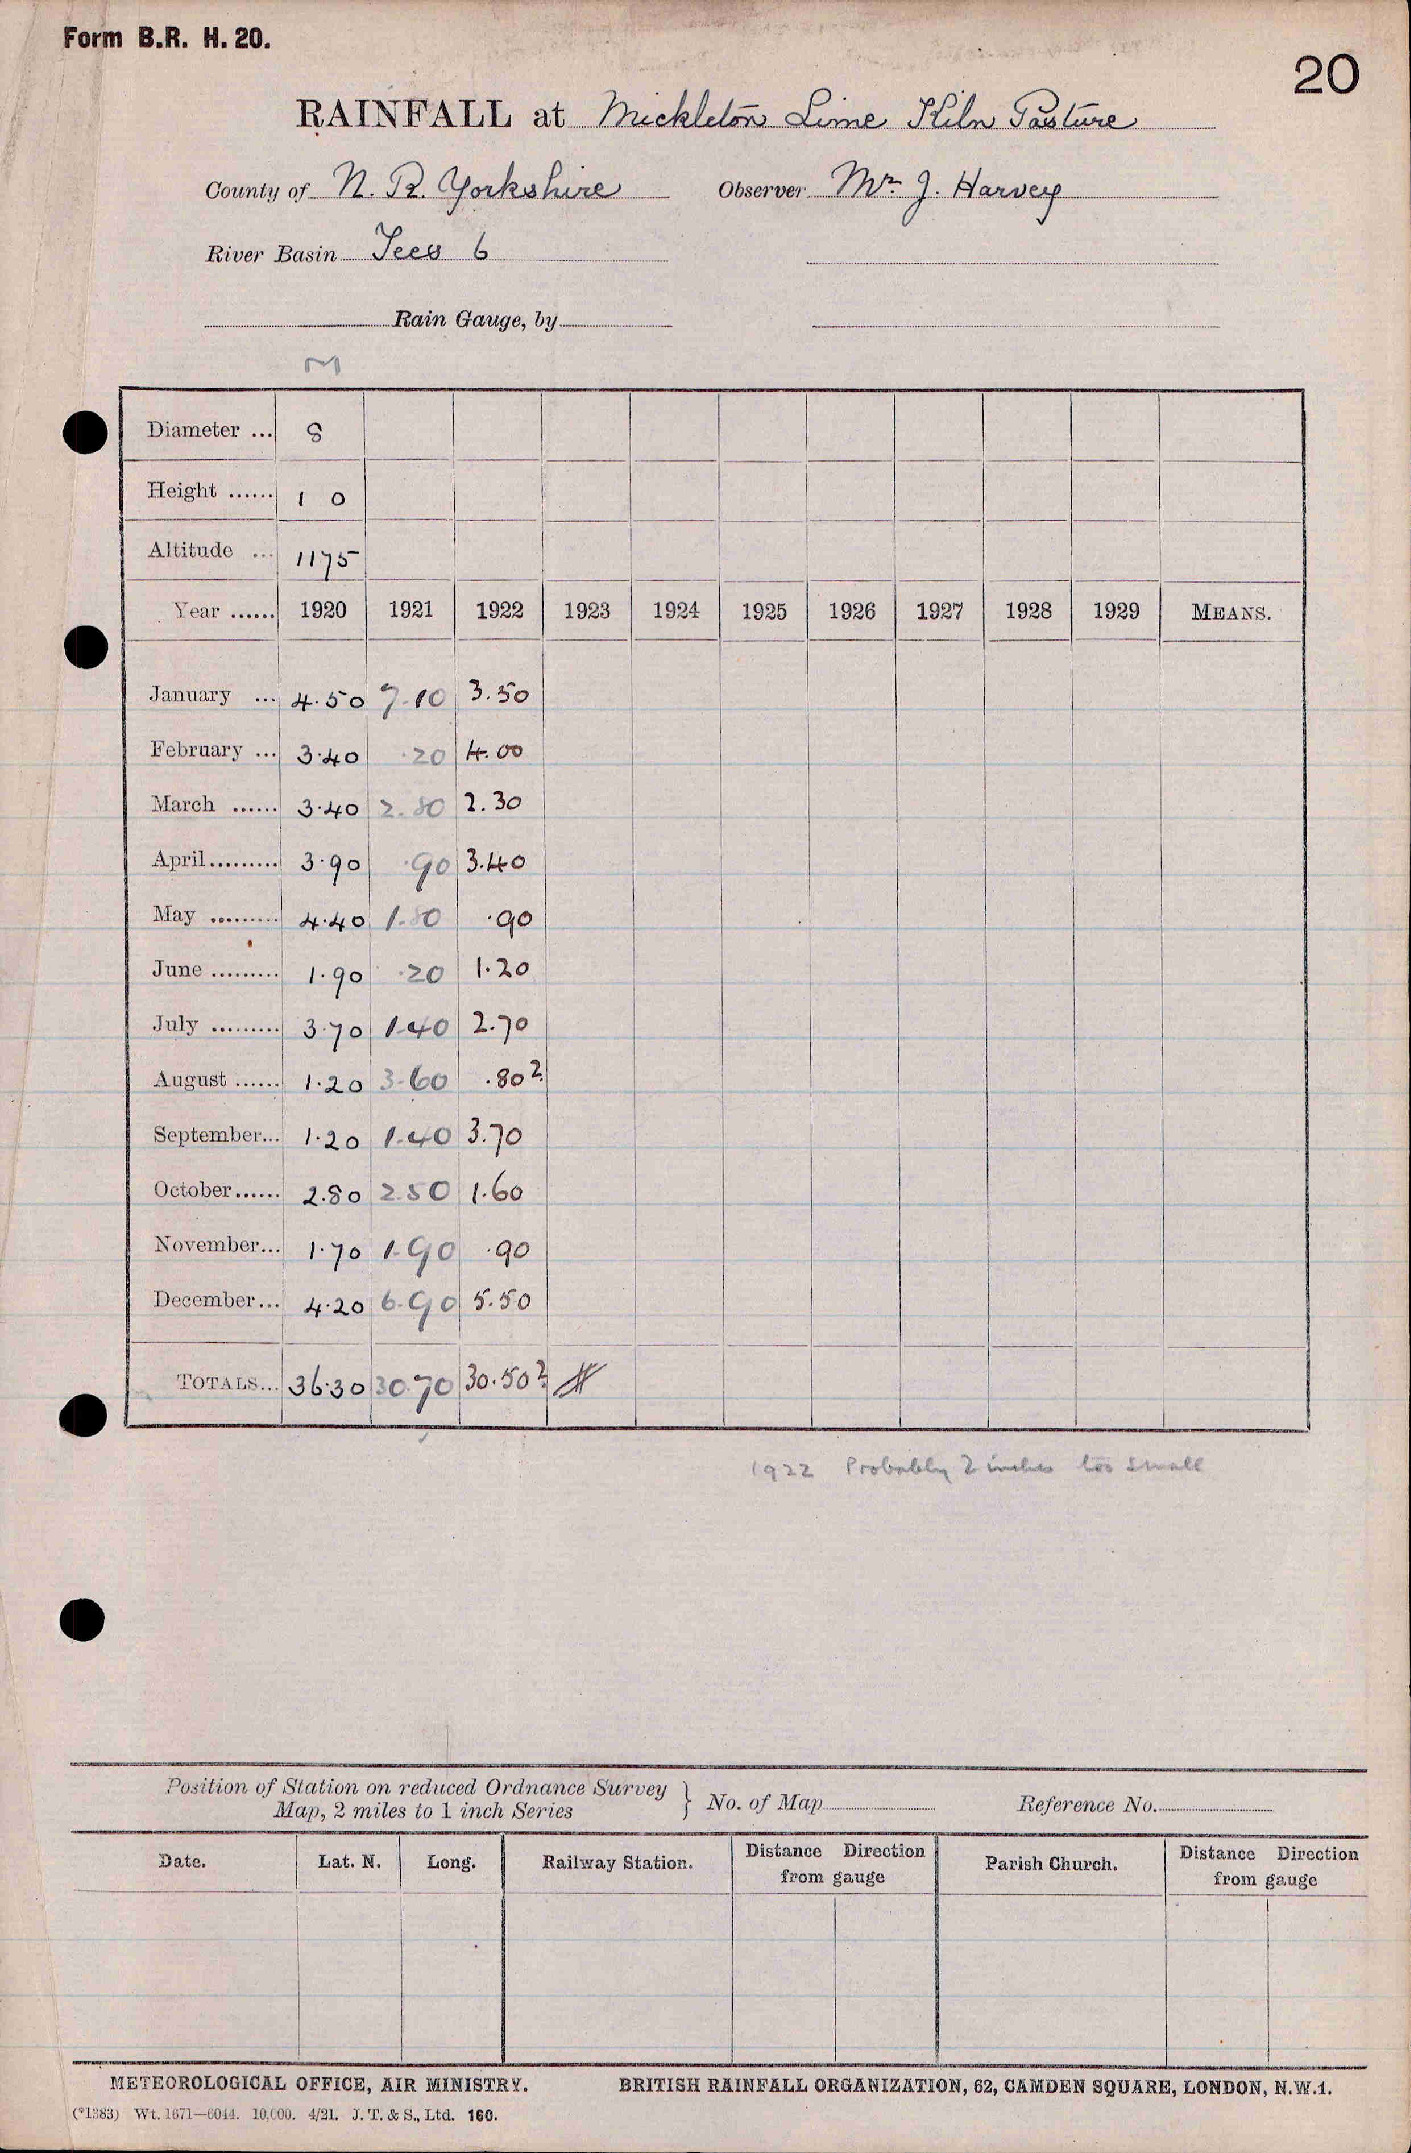 Form B.R. H. 20.
20
RAINFALL at Mickleton Lime Kiln Pasture
County of N. R. Yorkshire Observer Mr. J. Harvey
River Basin Tees 6
Rain Gauge, by
M
Diameter ... 8
Height ...... 1 0
Altitude ... 1175
Year ...... 1920 1921 1922 1923 1924 1925 1926 1927 1928 1929 MEANS.
January ... 4.50 7.10 3.50
February ... 3.40 .20 4.00
March ...... 3.40 2.80 2.30
April ......... 3.90 .90 3.40
May ......... 4.40 1.80 .90
June ......... 1.90 .20 1.20
July ......... 3.70 1.40 2.70
August ...... 1.20 3.60 .80?
September... 1.20 1.40 3.70
October ...... 2.80 2.50 1.60
November... 1.70 1.90 .90
December... 4.20 6.90 5.50
TOTALS... 36.30 30.70 30.50?
1922 Probably 2 inches too small
Position of Station on reduced Ordnance Survey
Map, 2 miles to 1 inch Series } No. of Map Reference No.
Date. Lat. N. Long. Railway Station. Distance Direction from gauge Parish Church. Distance Direction from gauge
METEOROLOGICAL OFFICE, AIR MINISTRY. BRITISH RAINFALL ORGANIZATION, 62, CAMDEN SQUARE, LONDON, N.W.1.
(*1383) Wt. 1671—6044. 10,000. 4/21. J. T. & S., Ltd. 160.